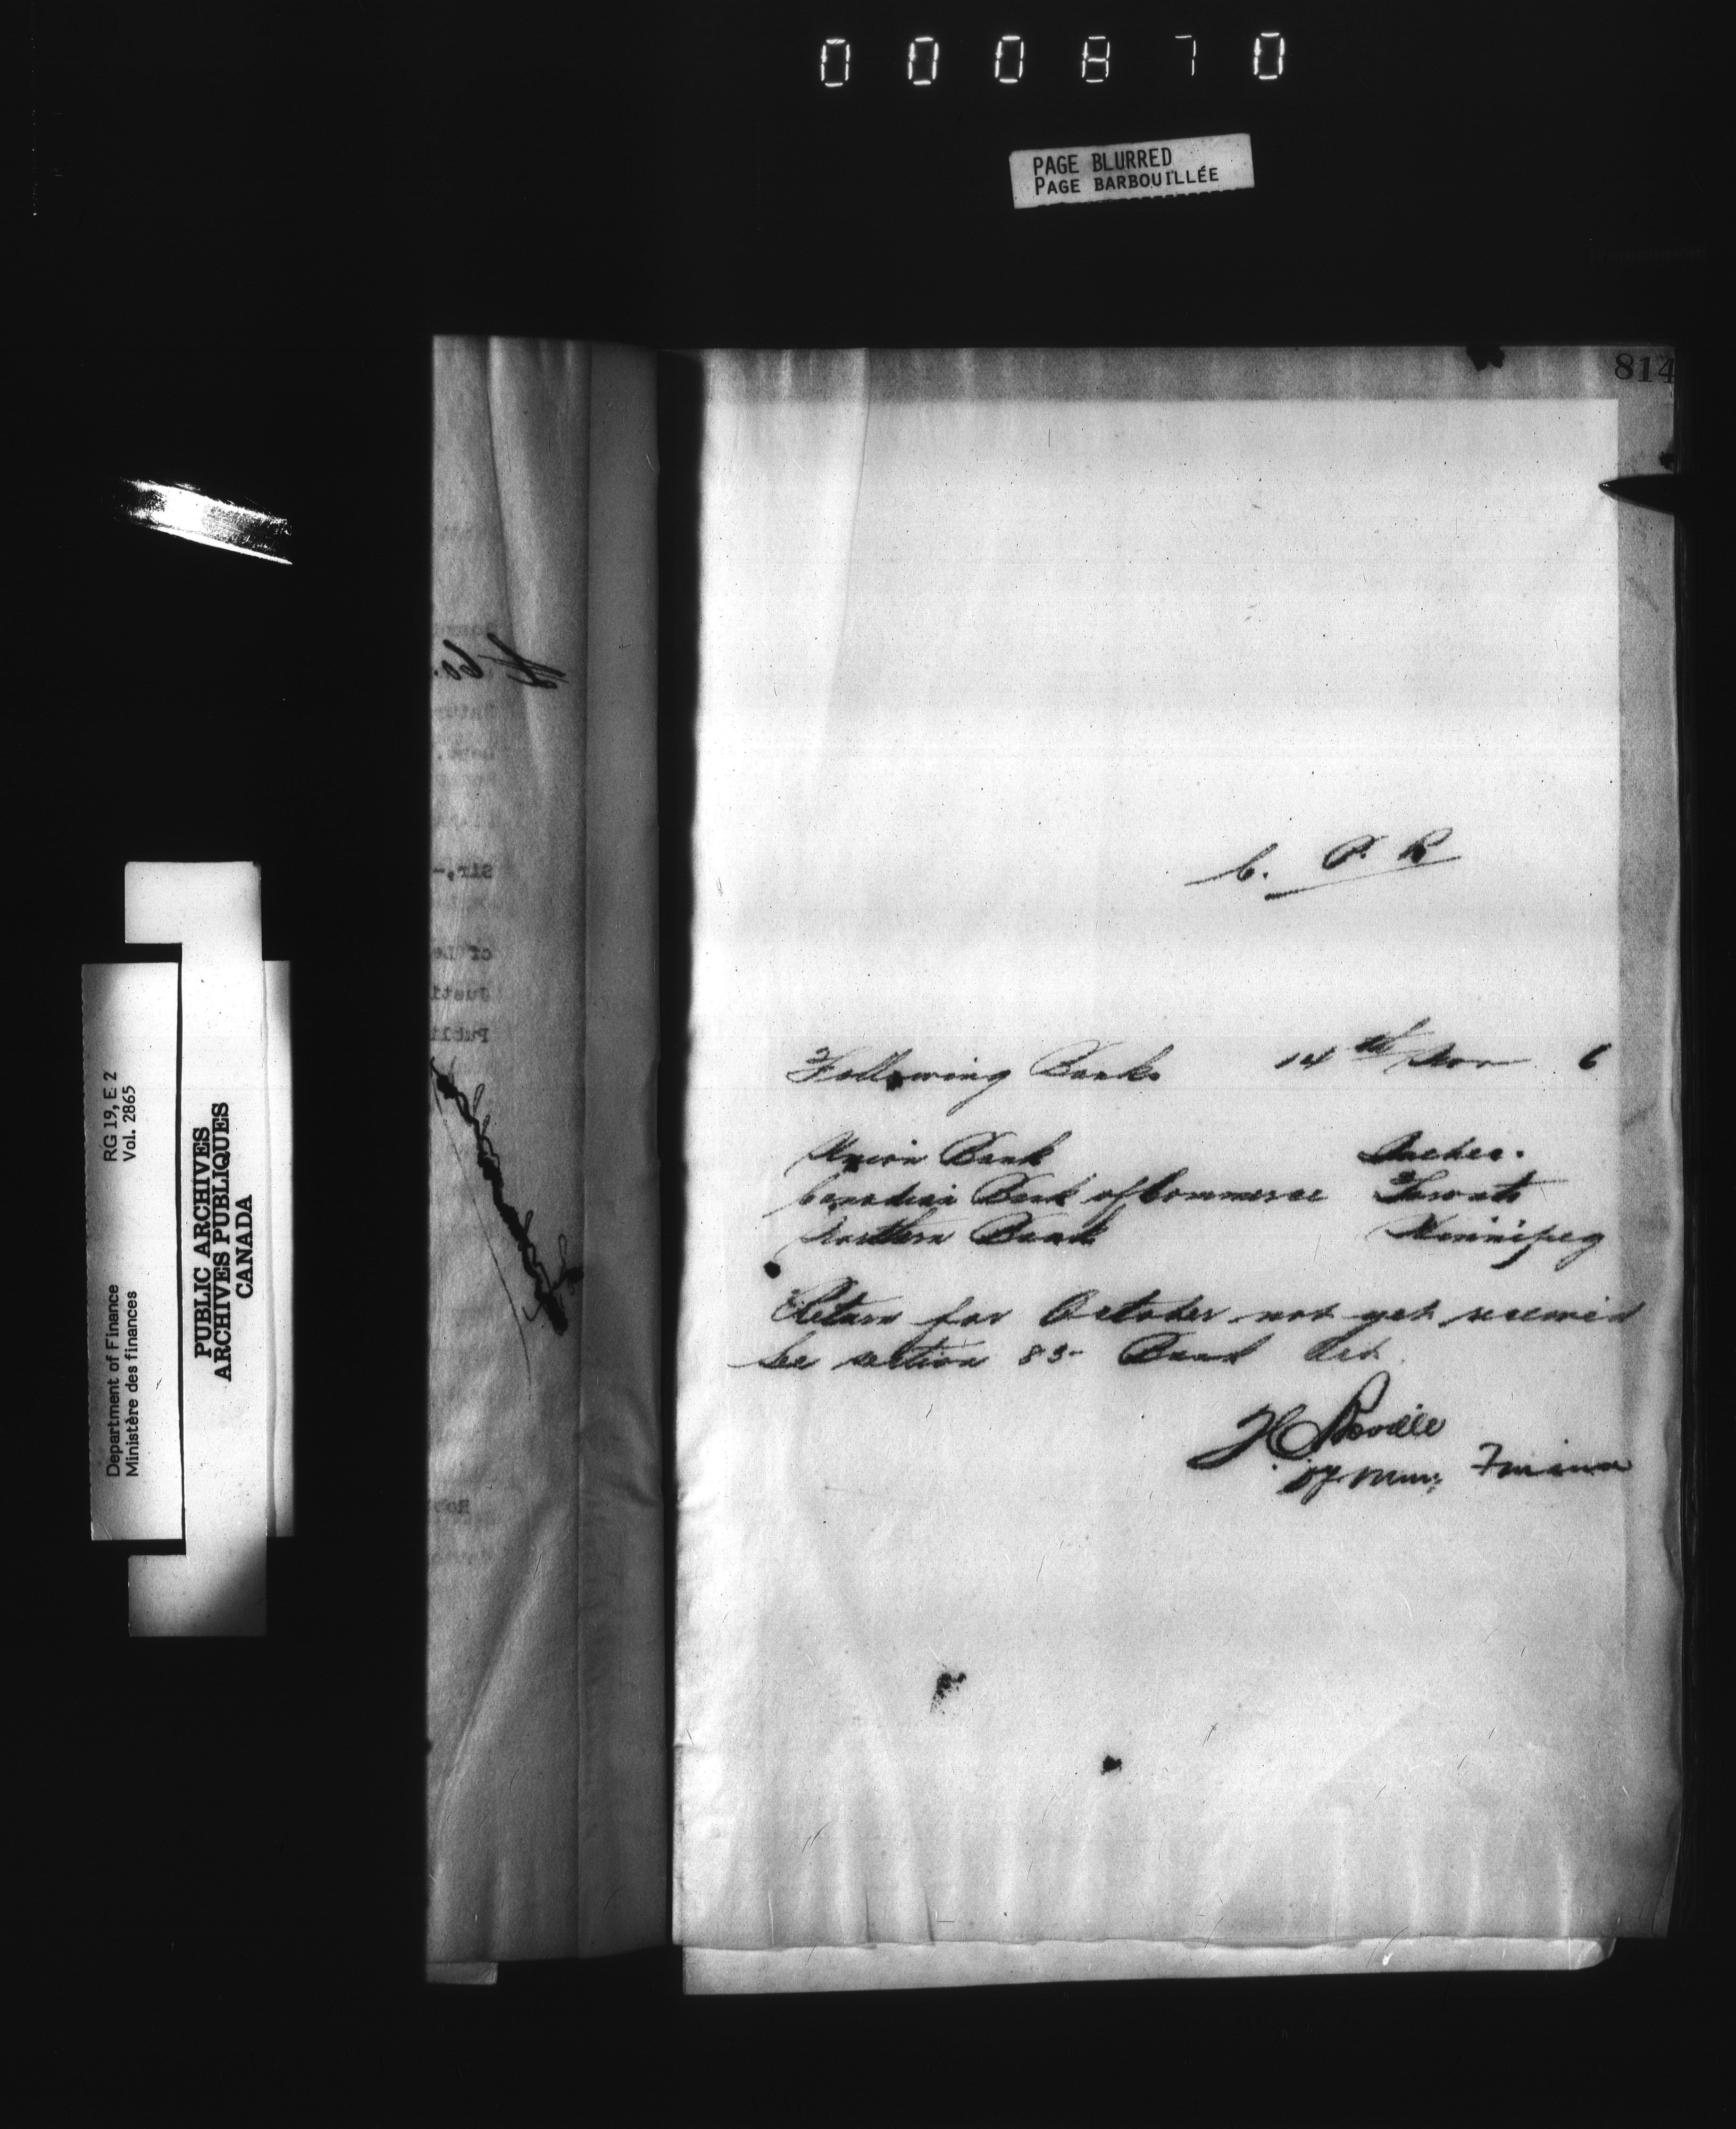 000870
PAGE BLURRED
PAGE BARBOUILLÉE
814
C. P. R
Following Banks 14th Nov 6
Union Bank Quebec.
Canadian Bank of Commerce Toronto
Northern Bank Winnipeg
Return for October not yet received
See section 85 Bank Act.
Dy. Min; Finance
RG 19, E 2
Vol. 2865
Department of Finance
Ministère des finances
PUBLIC ARCHIVES
ARCHIVES PUBLIQUES
CANADA
Sir,-